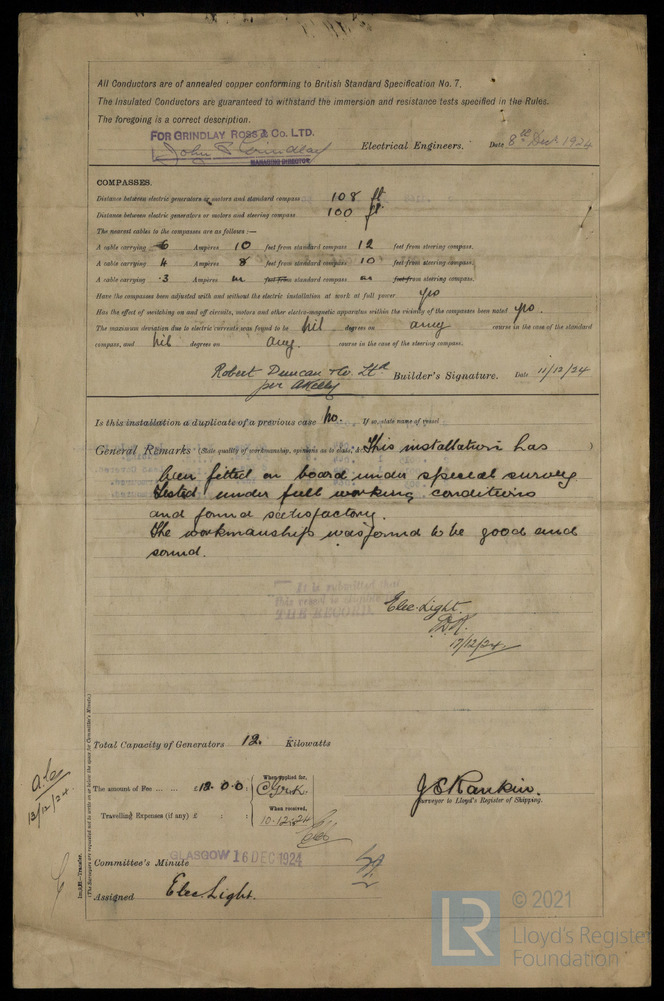 All Conductors are of annealed copper conforming to British Standard Specification No. 7.
The Insulated Conductors are guaranteed to withstand the immersion and resistance tests specified in the Rules.
The foregoing is a correct description.
FOR GRINDLAY ROSS & CO. LTD.
John Grindlay Electrical Engineers. Date 8th Decr 1924
MANAGING DIRECTOR
COMPASSES.
Distance between electric generators or motors and standard compass 108 ft
Distance between electric generators or motors and steering compass 100 ft
The nearest cables to the compasses are as follows:—
A cable carrying 6 Ampères 10 feet from standard compass 12 feet from steering compass.
A cable carrying 4 Ampères 8 feet from standard compass 10 feet from steering compass.
A cable carrying .3 Ampères in feet from standard compass in feet from steering compass.
Have the compasses been adjusted with and without the electric installation at work at full power yes
Has the effect of switching on and off circuits, motors and other electro-magnetic apparatus within the vicinity of the compasses been noted yes.
The maximum deviation due to electric currents was found to be nil degrees on any course in the case of the standard
compass, and nil degrees on any course in the case of the steering compass.
Robert Duncan & Co. Ltd Builder's Signature. Date 11/12/24
per AKelly
Is this installation a duplicate of a previous case No. If so, state name of vessel
General Remarks (State quality of workmanship, opinions as to class, &c. This installation has
been fitted on board under special survey
Tested under full working conditions
and found satisfactory.
The workmanship was found to be good and
sound.
It is submitted that
this vessel is eligible for
THE RECORD. Elec. Light.
17/12/24
Total Capacity of Generators 12. Kilowatts
The amount of Fee ... ... £18.0.0 When applied for,
Travelling Expenses (if any) £ : : When received,
10.12.24
J E Rankin.
Surveyor to Lloyd's Register of Shipping.
Committee's Minute GLASGOW 16 DEC 1924
Assigned Elec Light.
13/12/24.
Im.3,20.—Transfer.
(The Surveyors are requested not to write on or below the space for Committee's Minute.)
LR
© 2021
Lloyd's Register
Foundation